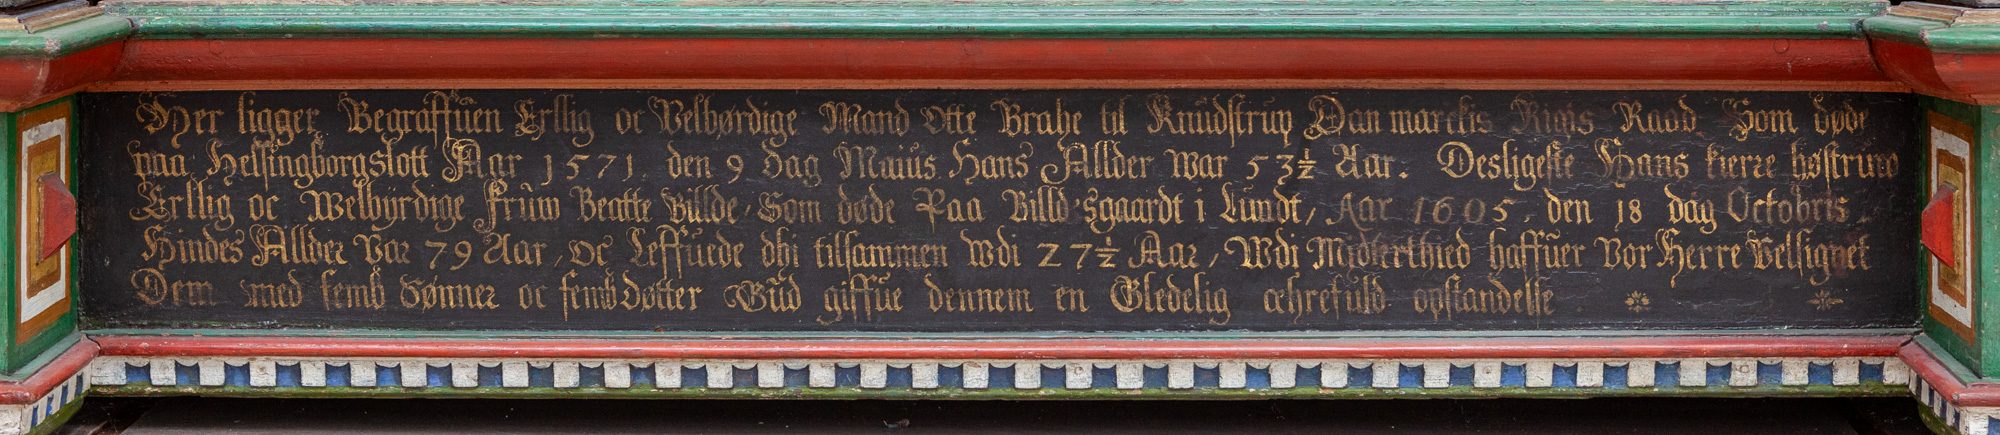 Her ligger Begraffuen Erllig oc Velbørdige Mand Otte Brahe til Knudstrup Danmarckis Rigis Raad Som døde
paa Helsingborgslott Aar 1571. den 9 dag Maius Hans Allder war 53½ Aar. Desligeste Hans kierre høstruo
Erllig oc Welbyrdige fruw Beatte Billde, Som døde Paa Billdsgaardt i Lundt, Aar 1605, den 18 dag Octobris
Hindes Allder Var 79 Aar, Oc Leffuede dhi tilsammen wdi 27½ Aar, Wdi Midlerthied haffuer Vor Herre Velsignet
Dem med femb Sønner oc femb Døtter Gud giffue dennem en Gledelig æhrefuld opstandelsse